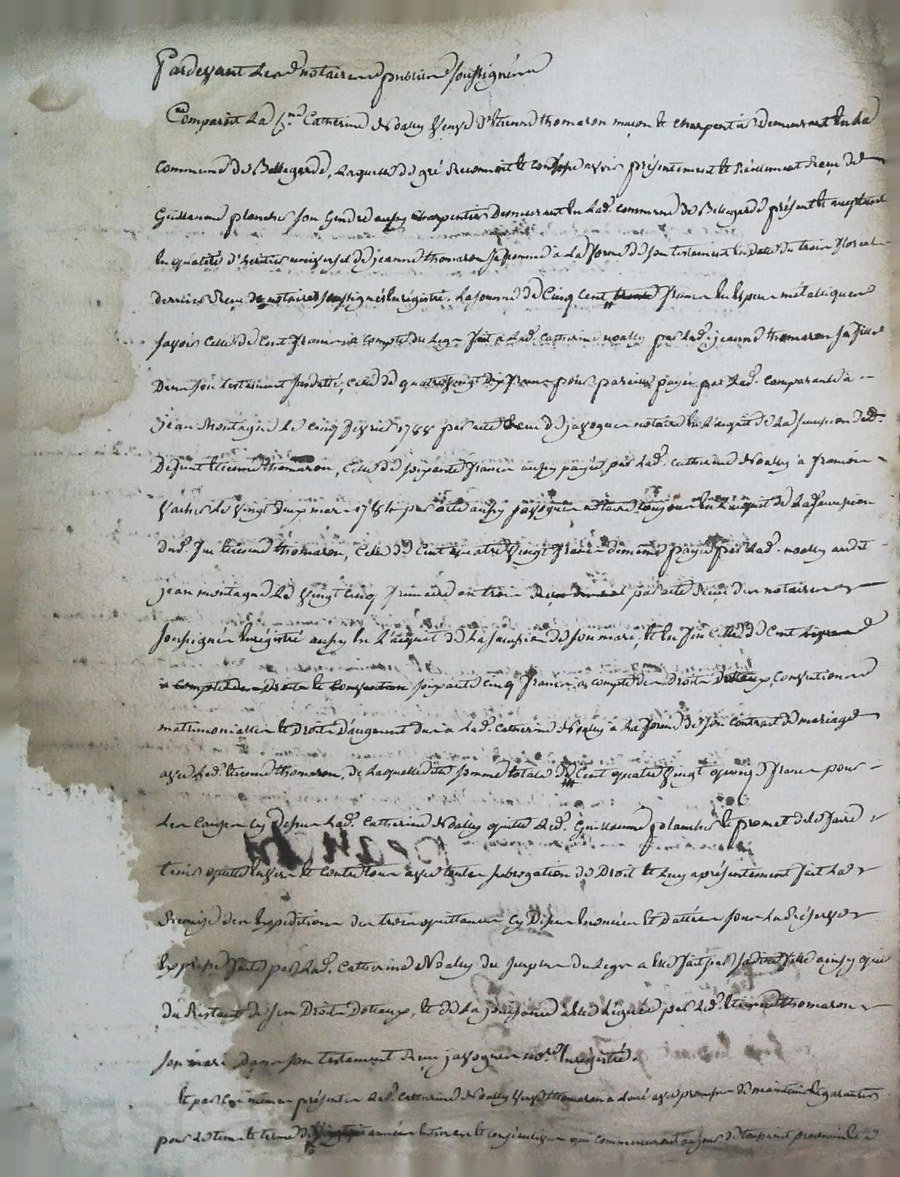 Pardevant Les d notaires publics soussignés
Comparoit La C.ne Catherine Noally Veuve d'Etienne thomaron maçon & charpentier Demeurant En La
commune de Bellegarde, Laquelle de gré Reconnoit & confesse avoir présentement & Réellement Reçu de
Guillaume planche son Gendre aussy charpentier Demeurant En Lad. commune de Bellegarde présent & acceptant
En qualité d'héritier universel de jeanne thomaron sa femme à La forme de son testament En Date du trois floreal
dernier Reçu des notaires soussignés Enregistré. La somme de Cinq Cent francs En Espece métalliques
savoir Celle de Cent francs à compte du Legs fait à Lad. Catherine noally par Lad. jeanne thomaron sa fille
Dans son testament susdatté, Celle de quatre vingt dix francs pour pareille payée par Lad. comparante à
jean Montagne Le cinq fevrier 1788 par acte Reçu de javogues notaire En L'acquit de La succession dud.
Defunt Etienne thomaron, Celle de soixante francs aussy payée par Lad. Catherine Noally à françois
Vacher Le Vingt deux mars 178 par acte aussy javogues notaire toujours En L'acquit de La succession
dud. feu Etienne thomaron, Celle de Cent quatre Vingt francs de même payée par Lad. noally audit
jean montagne Le Vingt cinq frimaire an trois par acte Reçu des notaires
soussignés Enregistré aussy En L'acquit de La succession de son mari, & En fin Celle de Cent
à compte des Droits & Convention soixante cinq francs à compte des Droits Dotaux, Conventions
matrimonialles & Droit d'augment dus à Lad. Catherine Noally à La forme de son contract de mariage
avec Led. Etienne thomaron, de Laquelle dite somme totale de Cent quatre Vingt quinze francs pour
Les Causes cy Dessus Lad. Catherine Noally quitte Led. Guillaume planche & promet de le faire
tenir quitte Envers & contre tous avec toute subrogation de Droit & Luy a présentement fait La
Remise des Expeditions des trois quittances cy Dessus Enoncées Et Dattées sous La Réserve
Expresse faite par Lad. Catherine Noally du surplus du Legs à Elle fait par Sadite fille ainsy que
du Restant de ses Droits Dotaux, & de La jouissance à Elle Léguée par Led. Etienne thomaron
son mari dans son testament Reçu javogues no.re Enregistré.
Et par Ces mêmes présentes Lad. Catherine Noally Veuve thomaron a Loué avec promesse de maintenir & garantir
pour Le tems & terme de années Entieres & consécutives qui commenceront au jour de toussaint prochaine &